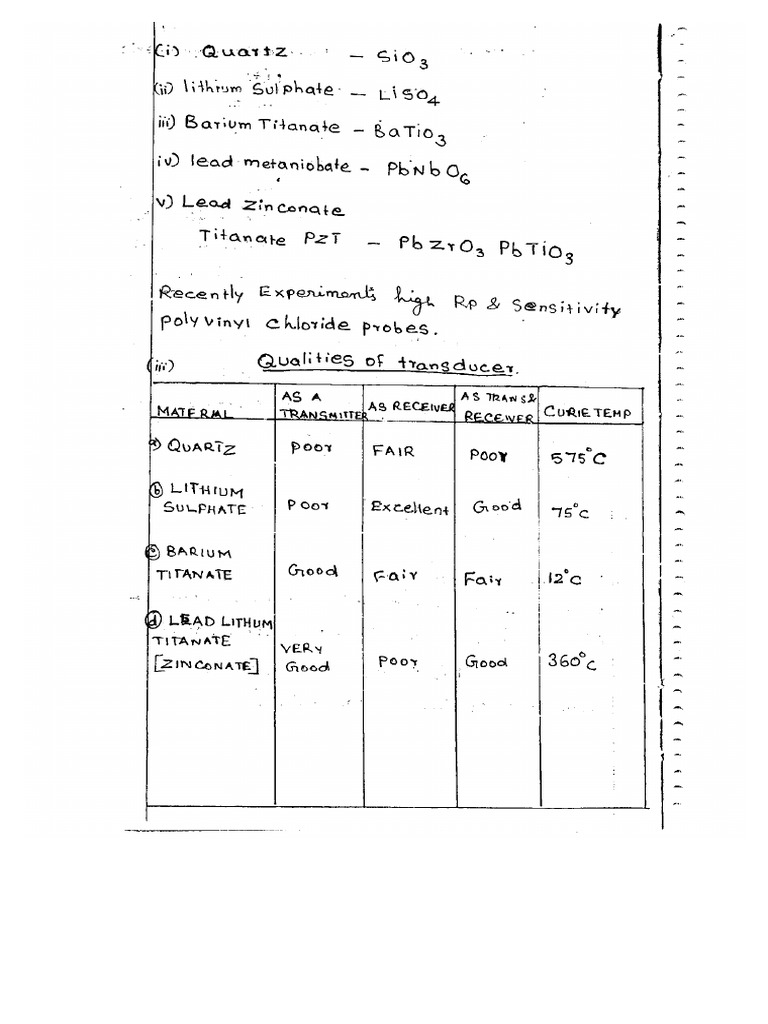 (i) Quartz – SiO3
(ii) lithium Sulphate – LiSO4
iii) Barium Titanate – BaTiO3
iv) lead metaniobate – PbNbO6
v) Lead Zinconate
Titanate PZT – PbZrO3 PbTiO3
Recently Experiments high Rp & Sensitivity
polyvinyl chloride probes.
(iii) Qualities of transducer.
MATERIAL AS A TRANSMITTER AS RECEIVER AS TRANS& RECEIVER CURIE TEMP
a) QUARTZ Poor FAIR Poor 575°C
(b) LITHIUM
SULPHATE Poor Excellent Good 75°C
(c) BARIUM
TITANATE Good Fair Fair 12°C
(d) LEAD LITHUM
TITANATE
[ZINCONATE] VERY Good Poor Good 360°C